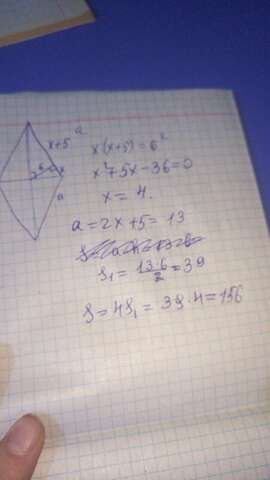 x+5
a
6
x
a
x(x+5) = 6²
x²+5x-36=0
x = 4.
a = 2x+5 = 13
S₁ = 13·6/2 = 39
S = 4S₁ = 39·4 = 156